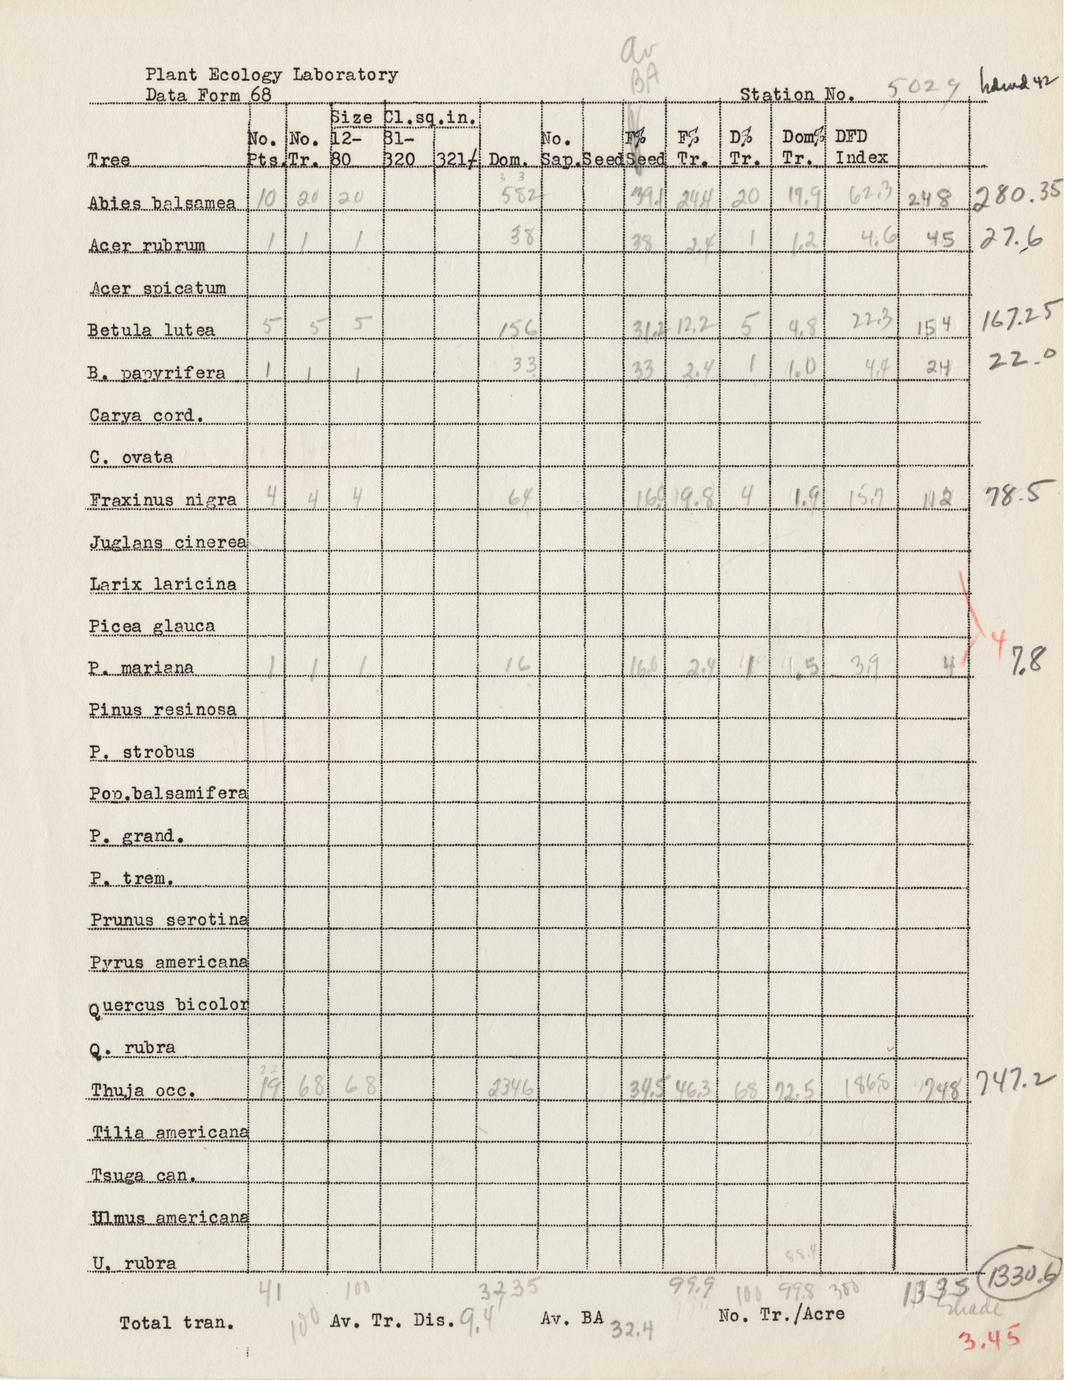 Av
BA
Plant Ecology Laboratory
Data Form 68 Station No. 5029
Size Cl.sq.in.
No. No. 12- 81- No. F% F% D% Dom% DFD
Tree Pts. Tr. 80 320 321/ Dom. Sap. Seed Seed Tr. Tr. Tr. Index
Abies balsamea 10 20 20 582 39.1 24.4 20 17.9 62.3 248 280.35
Acer rubrum 1 1 1 38 38 2.4 1 1.2 4.6 45 27.6
Acer spicatum
Betula lutea 5 5 5 156 31.2 12.2 5 4.8 22.3 154 167.25
B. papyrifera 1 1 1 33 33 2.4 1 1.0 4.4 24 22.0
Carya cord.
C. ovata
Fraxinus nigra 4 4 4 64 16.0 9.8 4 1.9 15.7 112 78.5
Juglans cinerea
Larix laricina
Picea glauca
4
P. mariana 1 1 1 16 16.0 2.4 1 .5 3.9 4 7.8
Pinus resinosa
P. strobus
Pop.balsamifera
P. grand.
P. trem.
Prunus serotina
Pyrus americana
Quercus bicolor
Q. rubra
22
Thuja occ. 19 68 68 2346 34.5 46.3 68 72.5 186.8 748 747.2
Tilia americana
Tsuga can.
Ulmus americana
U. rubra
41 100 3235 99.9 100 99.8 300 1335 1330.6
Total tran. 100 Av. Tr. Dis. 9.4 Av. BA 32.4 No. Tr./Acre
shade
3.45